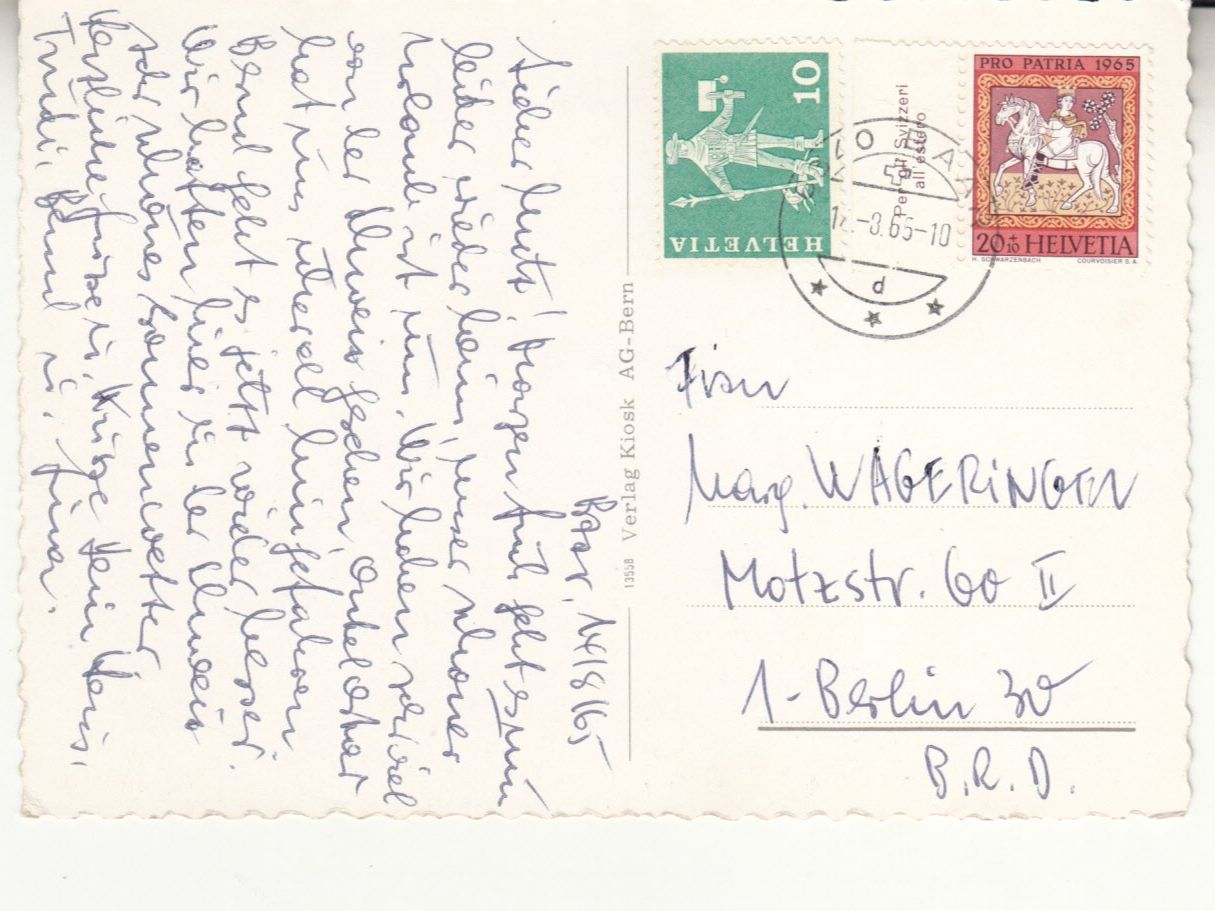 Baar, 14/8/65
Liebe Mutti! Morgen früh geht es nun
leider wieder heim, unser schöner
Urlaub ist um. Wir haben soviel
von der Schweiz gesehen, Onkel Oskar
hat uns überall hingefahren
Bernd geht es jetzt wieder besser.
Wir hatten hier in der Schweiz
sehr schönes Sommerwetter
Herzliche Grüße u. Küsse Dein
Trudi, Bernd u.
13558 Verlag Kiosk AG-Bern
HELVETIA
10
Per gli Svizzeri
all'estero
PRO PATRIA 1965
20+10 HELVETIA
H. SCHWARZENBACH COURVOISIER S.A.
-8.65-10
d
Frau
Marg. WAGERINGEN
Motzstr. 60 II
1-Berlin 30
B.R.D.